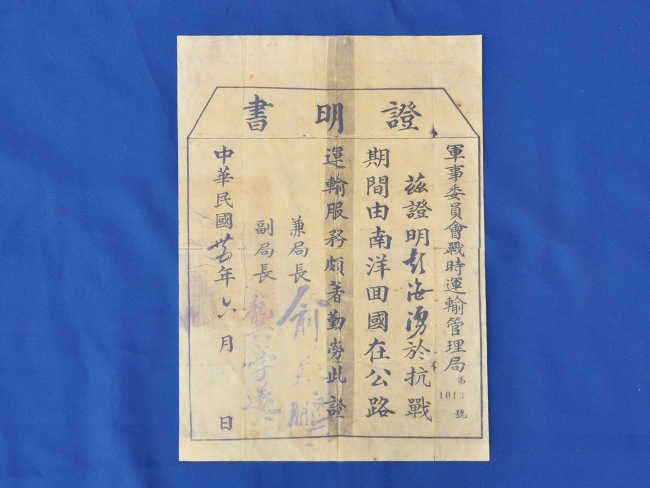 證明書
軍事委員會戰時運輸管理局第1013號
茲證明彭海湧於抗戰
期間由南洋回國在公路
運輸服務頗著勤勞此證
兼局長 俞飛鵬
副局長 龔學遂
中華民國卅五年六月 日